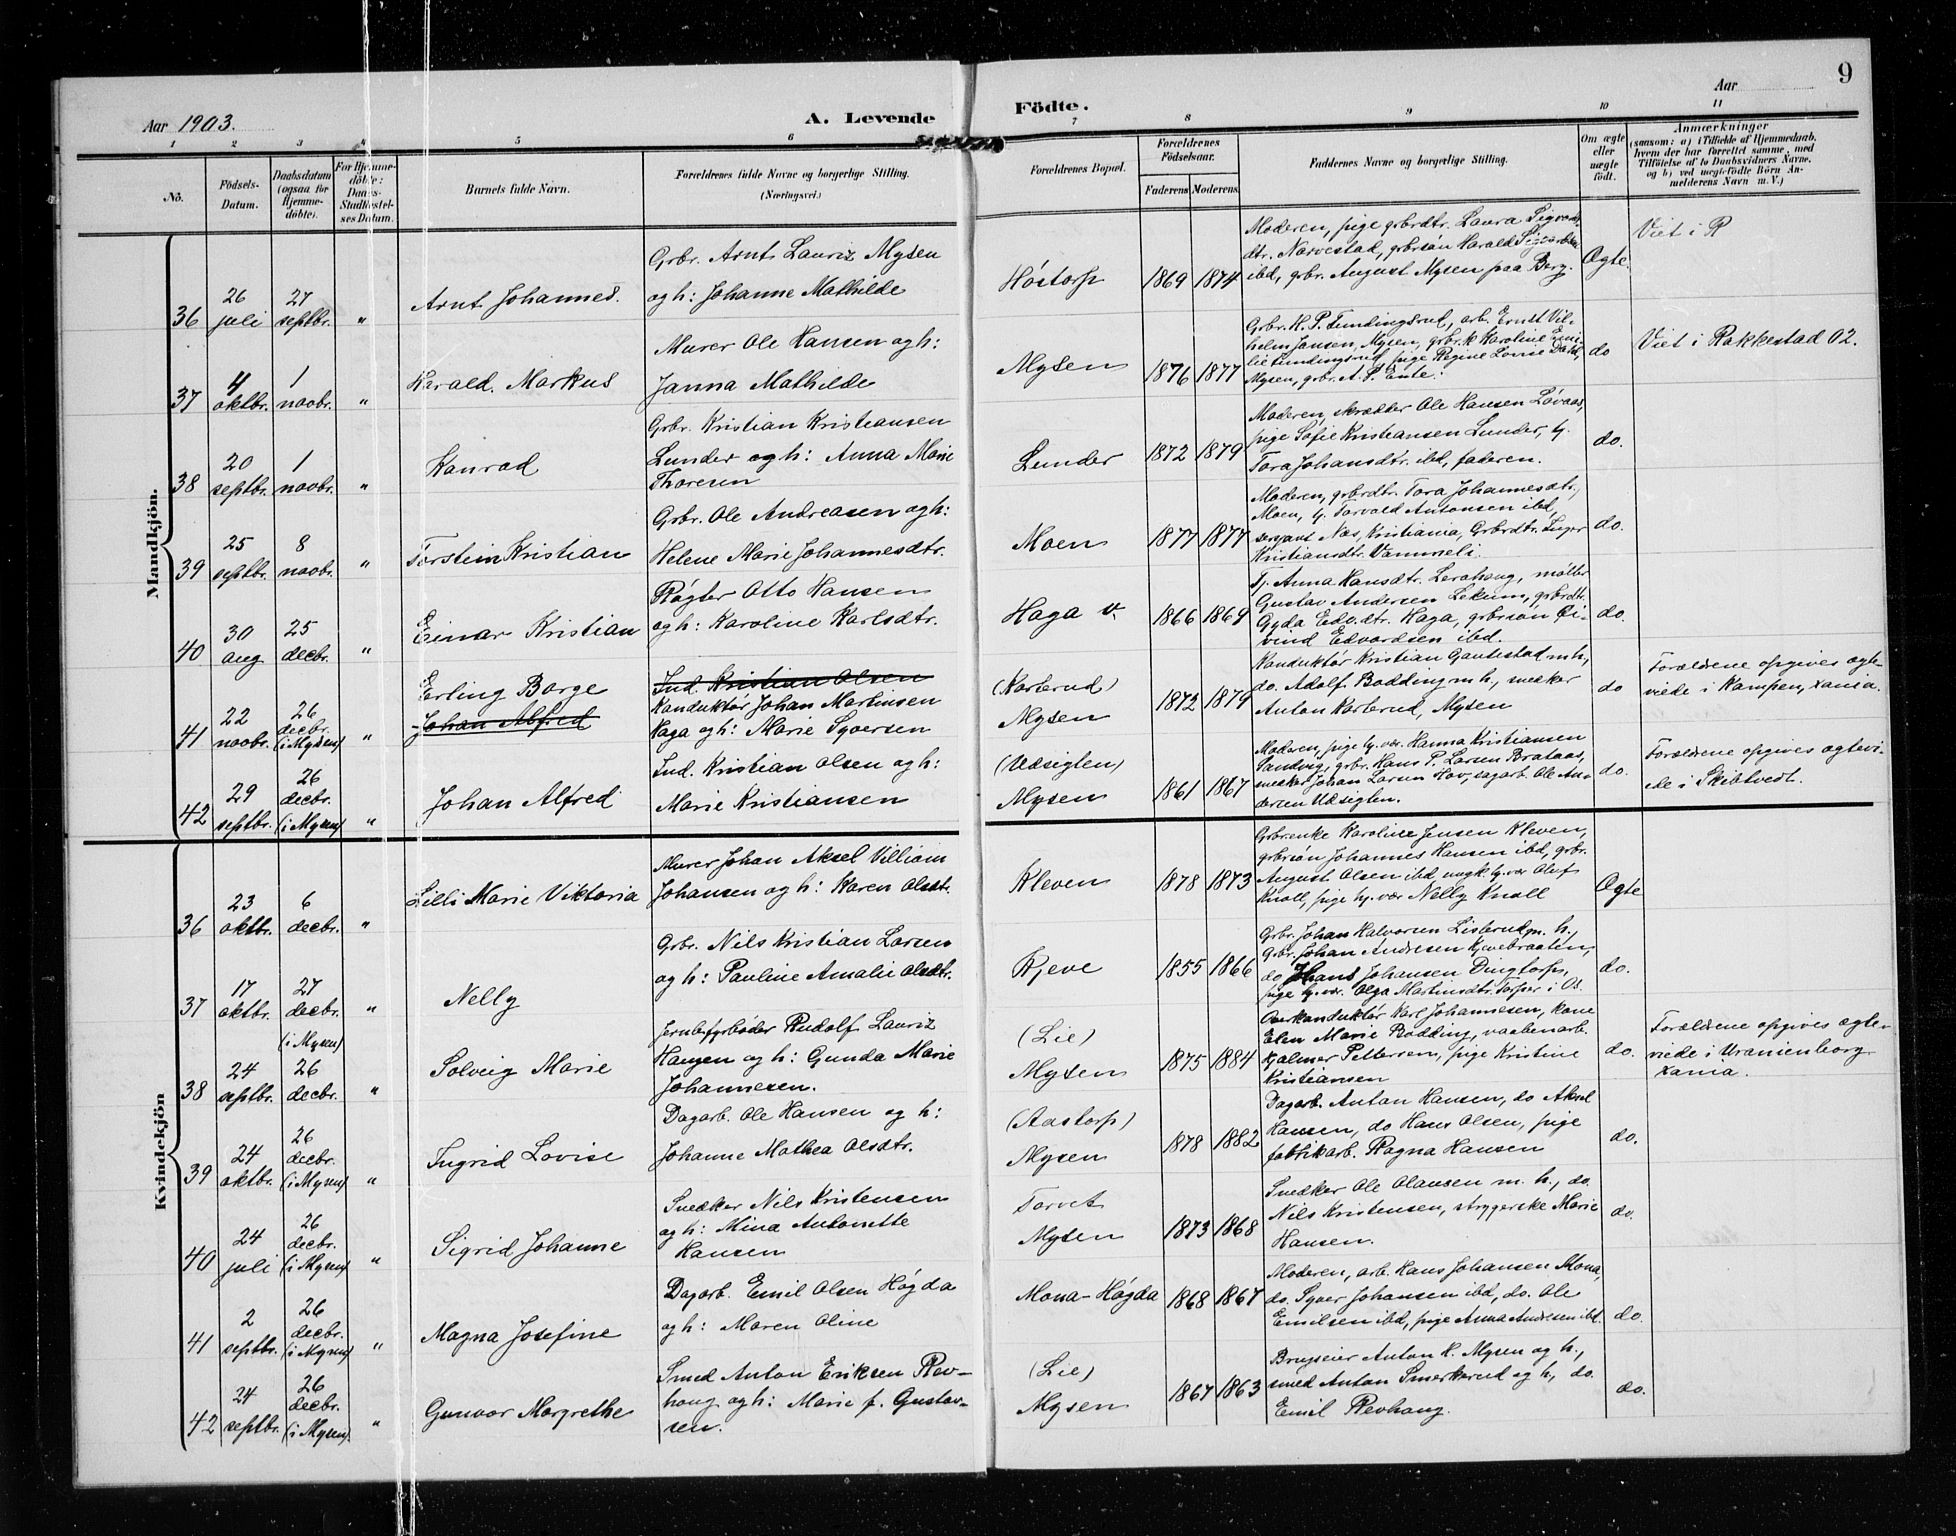 9
Aar 1903.
A. Levende
Födte.
Aar
1 2 3 4 5 6 7 8 9 10 11
No.
Födsels-
Datum.
Daabsdatum
(ogsaa for
Hjemme-
döbte).
For Hjemme-
döbte:
Daabs-
Stadfæstel-
ses Datum.
Barnets fulde Navn.
Forældrenes fulde Navne og borgerlige Stilling.
(Næringsvei.)
Forældrenes Bopæl.
Forældrenes
Födselsaar.
Faderens. Moderens.
Faddernes Navne og borgerlige Stilling.
Om ægte
eller
uægte
födt.
Anmærkninger
(saasom: a) i Tilfælde af Hjemmedaab,
hvem der har forrettet samme, med
Tilföielse af to Daabsvidners Navne,
og b) ved uægtefödte Börn An-
melderens Navn m. V.)
Mandkjön.
36
26
juli
27
septbr.
"
Arnt Johannes.
Grbr. Arnt Lauriz Mysen
og h: Johanne Mathilde
Höstorp
1869 1874
Moderen, pige grbrdtr. Laura
dtr. Narvestad, grbrsön Harald
ibd, grbr. August Mysen paa Berg.
Ægte.
Viet i R
37
4
oktbr.
1
novbr.
"
Harald Markus
Murer Ole Hansen og h:
Janna Mathilde
Mysen
1876 1877
Grbr. H. P. Tundingsrud, arb. Ernst Vil-
helm Jansen, Mysen, grbr.k Karoline Emi-
lie Tundingsrud, pige Regine Lovise Dahl,
Mysen, grbr. A. S. Ente.
do
Viet i Rakkestad 02.
38
20
septbr.
1
novbr.
"
Konrad
Grbr. Kristian Kristiansen
Lunder og h: Anna Marie
Thoresen
Lunder
1872 1879
Moderen, skrædder Ole Hansen Lövaas,
pige Sofie Kristiansen Lunder, tj.
Tora Johansdtr. ibd, faderen.
do.
39
25
septbr.
8
novbr.
"
Torstein Kristian
Grbr. Ole Andreasen og h:
Helene Marie Johannesdtr.
Moen
1877 1877
Moderen, grbrdtr. Tora Johannesdtr,
Moen, tj. Torvald Antonsen ibd,
serjant Næs, Kristiania, Grbrdtr. Inger
Kristiansdtr. Vammeli.
do.
40
30
aug
25
decbr.
"
Einar Kristian
Rögter Otto Hansen
og h: Karoline Karlsdtr.
Haga v.
1866 1869
Tj. Anna Hansdtr. Lerohaug, möller
Gustav Andersen Lekum, grbrdtr.
Gyda Edv.dtr. Haga, grbrsön Ei-
vind Edvardsen ibd.
do.
41
22
novbr.
26
decbr.
(i Mysen)
"
Erling Borge
Johan Alfred
Ind. Kristian Olsen
Konduktör Johan Martinsen
Haga og h: Marie Syversen
(Karlsrud)
Mysen
1872 1879
Konduktör Kristian Gautestad m h,
do. Adolf Bodding m h, snekker
Anton Karlsrud, Mysen
do
Forældrene opgives ægte-
viede i Kampen, Xania.
42
29
septbr.
26
decbr.
(i Mysen)
"
Johan Alfred
Ind. Kristian Olsen og h:
Marie Kristiansen
(Udsigten)
Mysen
1861 1867
Moderen, pige hj.vær. Hanna Kristiansen
Sandvig, grbr. Hans P. Larsen Brataas,
snekker Johan Larsen Hov, sagarb. Ole An-
dersen Udsigten.
do.
Forældrene opgives ægtevi-
ede i Skibtvedt.
Kvindekjön
36
23
oktbr.
6
decbr.
"
Lilli Marie Viktoria
Murer Johan Aksel Villiam
Johansen og h: Karen Olsdt.
Kleven
1878 1873
Grbr.enke Karoline Jensen Kleven,
grbrsön Johannes Hansen ibd, grbr.
August Olsen ibd, ungk. hj.vær Olaf
Knoll, pige hj.vær Nelly Knoll
Ægte
37
17
oktbr.
27
decbr.
"
Nelly
Grbr. Nils Kristian Larsen
og h: Pauline Amalie Olsdtr.
Kjeve
1855 1866
Grbr. Johan Halvorsen Lisbrud m. h.,
grbr. Johan Andresen Kjevebraaten,
do Hans Johansen Dingtorp,
pige hj.vær. Olga Martinsdtr. Torper i Os.
do.
38
24
septbr.
(i Mysen)
26
decbr.
"
Solveig Marie
Jernb.fyrböder Rudolf Lauriz
Haugen og h: Gunda Marie
Johannesen.
(Lie)
Mysen
1875 1884
Overkonduktör Karl Johannesen, kone
Elen Marie Bodding, vaabenarb.
Hjalmar Pettersen, pige Kristine
Kristiansen
do.
Forældrene opgives ægte-
viede i Uranienborg
Xania.
39
24
oktbr.
26
decbr.
(i Mysen)
"
Ingrid Lovise
Dagarb. Ole Hansen og h:
Johanne Mathea Olsdtr.
(Aastorp)
Mysen
1878 1882
Dagarb. Anton Hansen, do Aksel
Hansen, do Hans Olsen, pige
fabrikarb. Ragna Hansen
do.
40
24
juli
26
decbr.
(i Mysen)
"
Sigrid Johanne
Snedker Nils Kristensen
og h: Mina Antonette
Hansen
Torvet
Mysen
1873 1868
Snedker Ole Olausen m. h., do.
Nils Kristensen, strygerske Marie
Hansen.
do.
41
2
septbr.
26
decbr.
(i Mysen)
"
Magna Josefine
Dagarb. Emil Olsen Högda
og h: Maren Oline
Mona-Högda
1868 1867
Moderen, arb. Hans Johansen Mona,
do. Syver Johansen ibd, do. Ole
Emilsen ibd, pige Anna Andresen ibd.
do.
42
24
septbr.
26
decbr.
(i Mysen).
"
Gunvor Margrethe
Smed Anton Eriksen Rev-
haug og h: Marie f. Gustav-
sen.
(Lie)
Mysen
1867 1863
Brugseier Anton H. Mysen og h.,
smed Anton Smerkerud og h, do.
Emil Revhaug.
do.